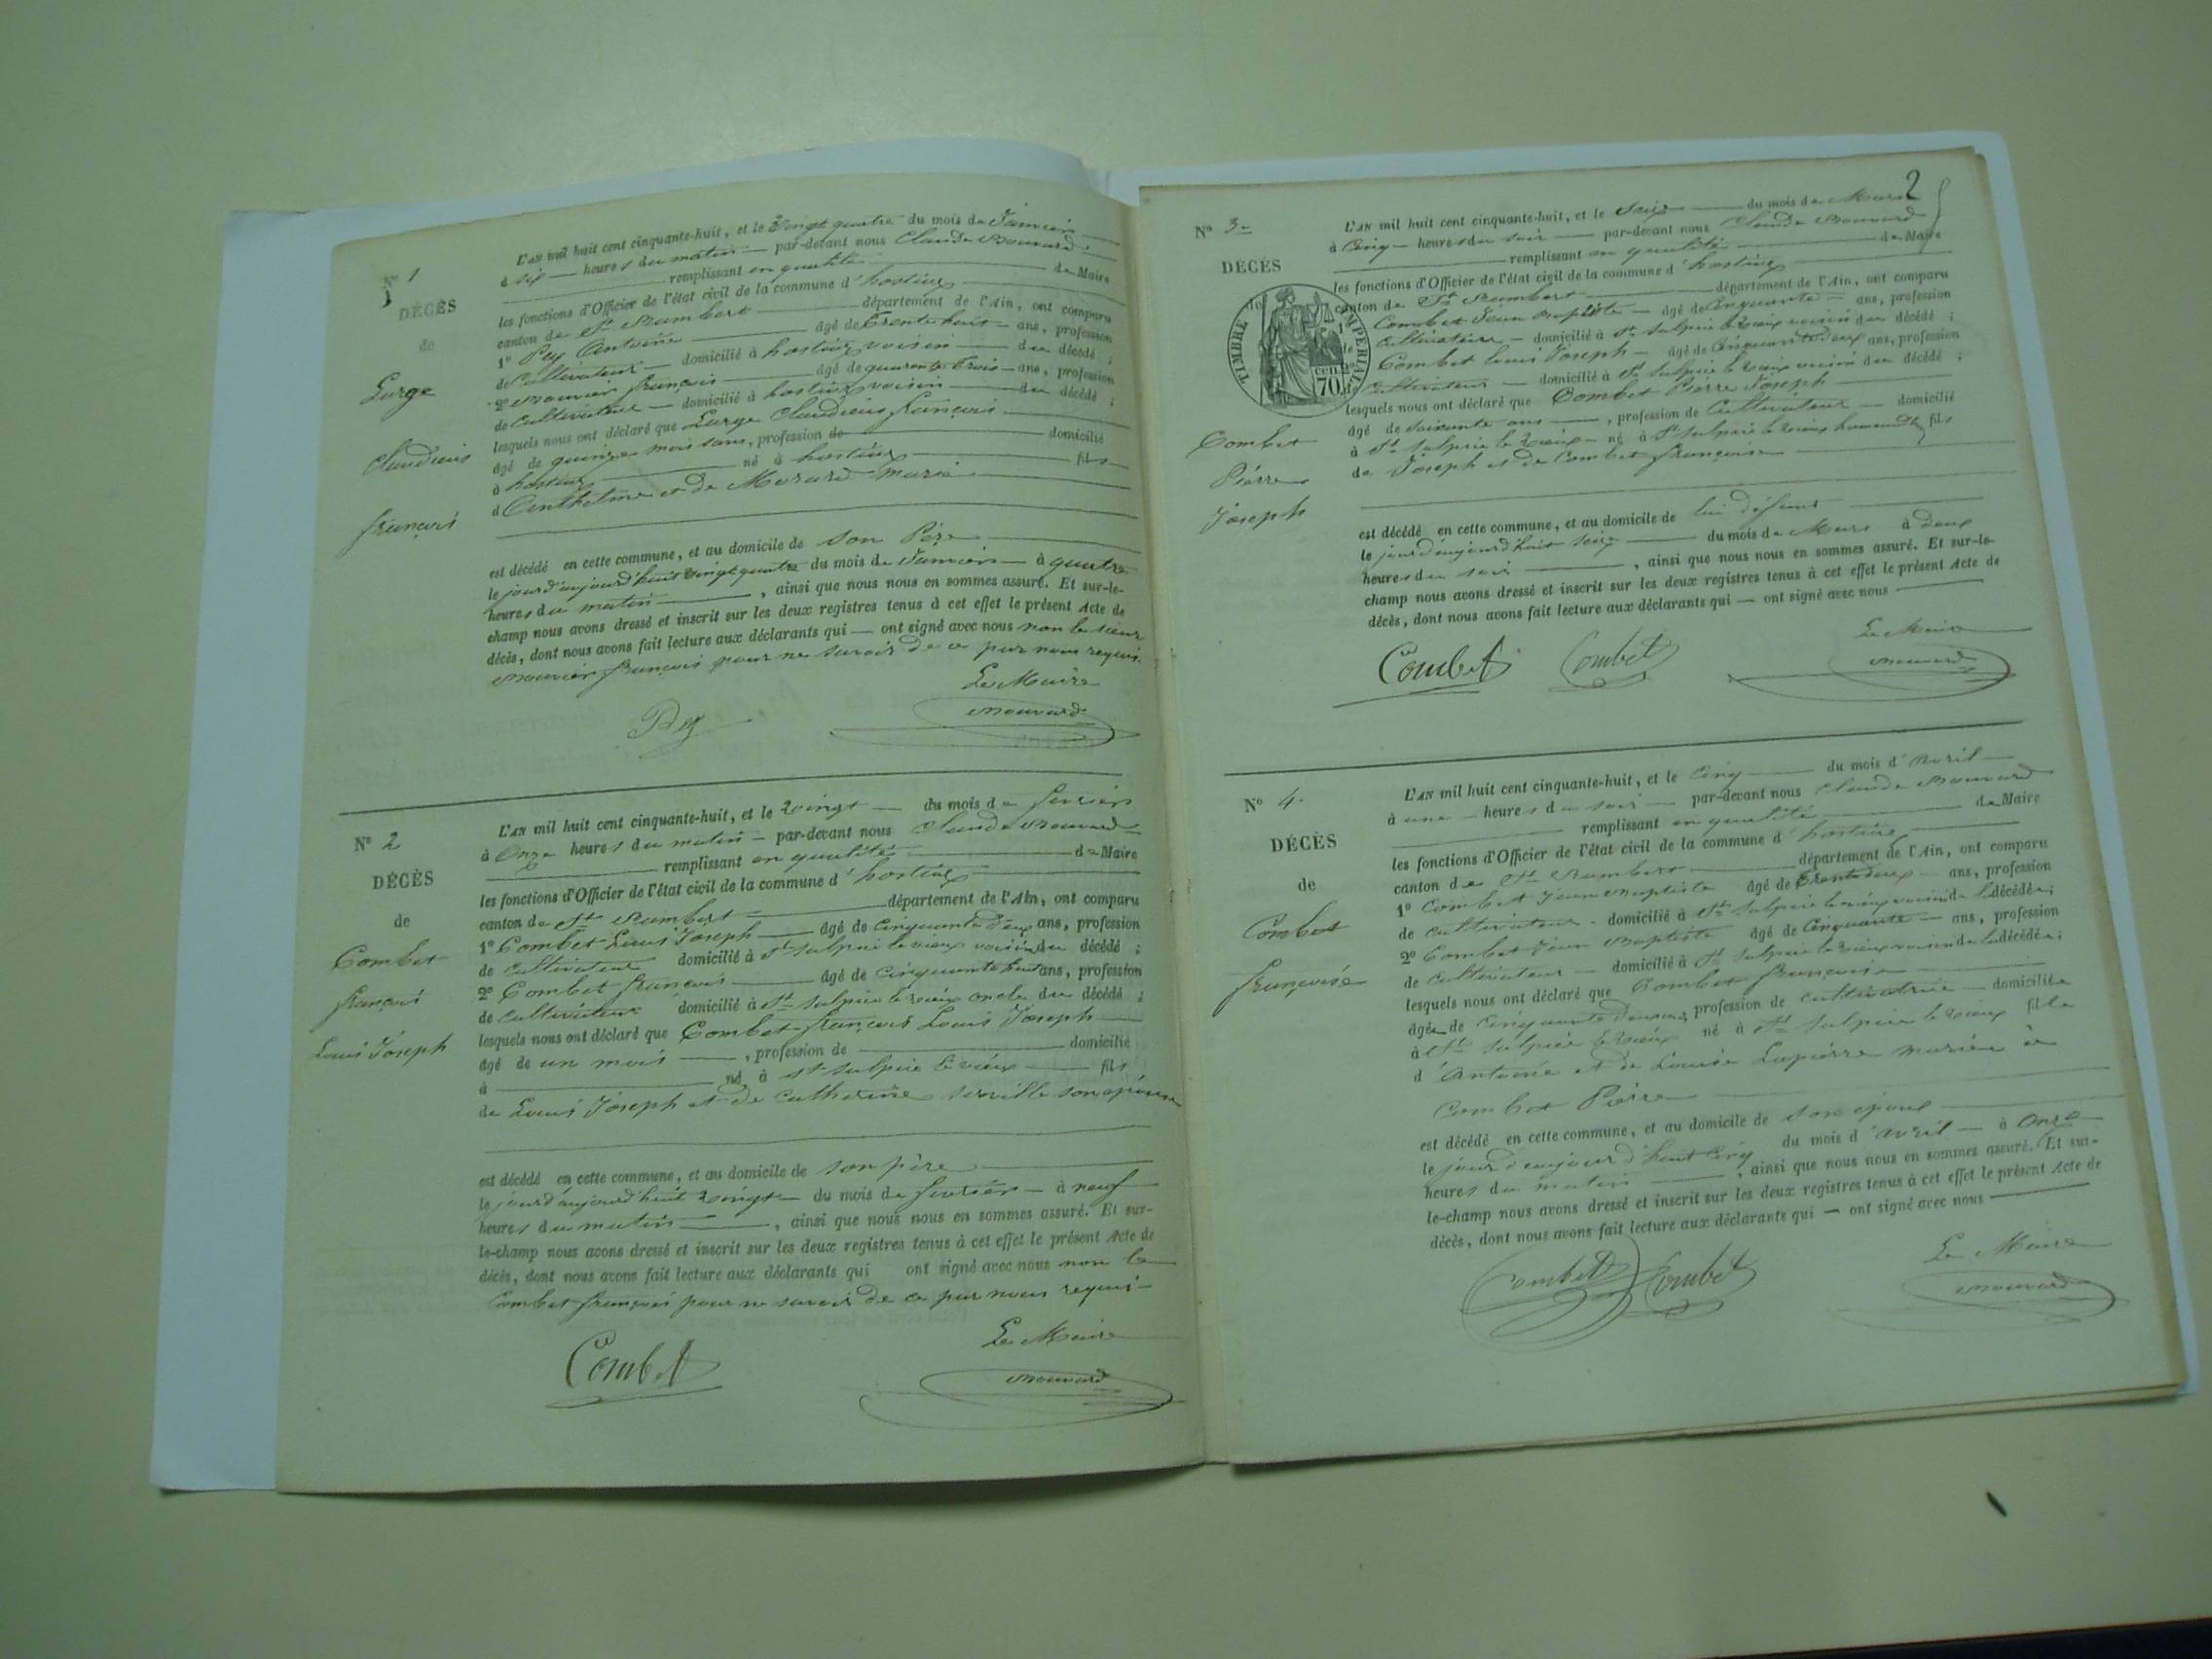 N° 1
DÉCÈS
de
Large
Claudius
françois
L'AN mil huit cent cinquante-huit, et le Vingt quatre du mois de Janvier
à six heures du matin par-devant nous Claude
remplissant en qualité de Maire
les fonctions d'Officier de l'état civil de la commune d'hostiaz
canton de St Rambert département de l'Ain, ont comparu
1° Pey Antoine âgé de Trente huit ans, profession
de Cultivateur domicilié à hostiaz voisin du décédé ;
2° françois âgé de quarante trois ans, profession
de Cultivateur domicilié à hostiaz voisin du décédé ;
lesquels nous ont déclaré que Large Claudius françois
âgé de quinze mois sans, profession de domicilié
à hostiaz né à hostiaz fils
d'Anthelme et de marie
est décédé en cette commune, et au domicile de son Père
le jourd'aujourd'huit vingt quatre du mois de Janvier à quatre
heures du matin, ainsi que nous nous en sommes assuré. Et sur-le-
champ nous avons dressé et inscrit sur les deux registres tenus à cet effet le présent Acte de
décès, dont nous avons fait lecture aux déclarants qui ont signé avec nous non le sieur
françois pour ne savoir de ce par nous requis.
Le Maire
Pey
N° 2
DÉCÈS
de
Combet
françois
Louis Joseph
L'AN mil huit cent cinquante-huit, et le vingt du mois de fevrier
à Onze heures du matin par-devant nous Claude
remplissant en qualité de Maire
les fonctions d'Officier de l'état civil de la commune d'hostiaz
canton de St Rambert département de l'Ain, ont comparu
1° Combet Louis Joseph âgé de cinquante deux ans, profession
de cultivateur domicilié à St Sulpice le vieux voisin du décédé ;
2° Combet françois âgé de cinquante huit ans, profession
de cultivateur domicilié à St Sulpice le vieux oncle du décédé ;
lesquels nous ont déclaré que Combet françois Louis Joseph
âgé de un mois, profession de domicilié
à né à St Sulpice le vieux fils
de Louis Joseph et de Catherine son épouse
est décédé en cette commune, et au domicile de son père
le jourd'aujourd'huit vingt du mois de fevrier à neuf
heures du matin, ainsi que nous nous en sommes assuré. Et sur-
le-champ nous avons dressé et inscrit sur les deux registres tenus à cet effet le présent Acte de
décès, dont nous avons fait lecture aux déclarants qui ont signé avec nous non le
Combet françois pour ne savoir de ce par nous requis
Le Maire
Combet
2
N° 3
DÉCÈS
TIMBRE IMPÉRIAL
70
de
Combet
Pierre
Joseph
L'AN mil huit cent cinquante-huit, et le Seize du mois de Mars
à Cinq heures du soir par-devant nous Claude
remplissant en qualité de Maire
les fonctions d'Officier de l'état civil de la commune d'hostiaz
canton de St Rambert département de l'Ain, ont comparu
1° Combet Jean Baptiste âgé de Cinquante ans, profession
Cultivateur domicilié à St Sulpice le vieux voisin du décédé ;
Combet Louis Joseph âgé de Cinquante deux ans, profession
Cultivateur domicilié à St Sulpice le vieux voisin du décédé ;
lesquels nous ont déclaré que Combet Pierre Joseph
âgé de soixante ans, profession de Cultivateur domicilié
à St Sulpice le vieux né à St Sulpice le vieux fils
de Joseph et de Combet françoise
est décédé en cette commune, et au domicile de lui défunt
le jourd'aujourd'huit seize du mois de Mars à deux
heures du soir, ainsi que nous nous en sommes assuré. Et sur-le-
champ nous avons dressé et inscrit sur les deux registres tenus à cet effet le présent Acte de
décès, dont nous avons fait lecture aux déclarants qui ont signé avec nous
Le Maire
Combet Combet
N° 4
DÉCÈS
de
Combet
françoise
L'AN mil huit cent cinquante-huit, et le Cinq du mois d'avril
à une heures du soir par-devant nous Claude
remplissant en qualité de Maire
les fonctions d'Officier de l'état civil de la commune d'hostiaz
canton de St Rambert département de l'Ain, ont comparu
1° Combet Jean Baptiste âgé de Trente deux ans, profession
de cultivateur domicilié à St Sulpice le vieux voisin de la décédée ;
2° Combet Jean Baptiste âgé de Cinquante ans, profession
de cultivateur domicilié à St Sulpice le vieux voisin de la décédée ;
lesquels nous ont déclaré que Combet françoise
âgée de cinquante deux ans, profession de cultivatrice domiciliée
à St Sulpice le vieux né à St Sulpice le vieux fille
d'Antoine et de Louise Lapierre mariée à
Combet Pierre
est décédé en cette commune, et au domicile de son époux
le jourd'aujourd'huit Cinq du mois d'avril à Onze
heures du matin, ainsi que nous nous en sommes assuré. Et sur-
le-champ nous avons dressé et inscrit sur les deux registres tenus à cet effet le présent Acte de
décès, dont nous avons fait lecture aux déclarants qui ont signé avec nous
Le Maire
Combet Combet